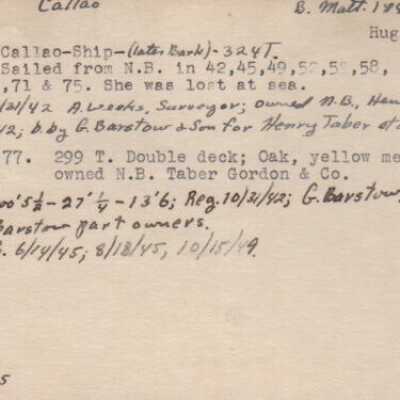 Callao B. Matt.
Hug
Callao-Ship-(later Bark)- 324T.
Sailed from N.B. in 42,45,49,52,5,58,
,71 & 75. She was lost at sea.
/21/42 A. Weeks, Surveyor; owned N.B., Hen
42; b. by G. Barstow & Son for Henry Taber et a
77. 299 T. Double deck; Oak, yellow me
owned N.B. Taber Gordon & Co.
00'5½ - 27'¼ - 13'6; Reg. 10/31/42; G. Barstow,
Barstow part owners.
6/14/45; 8/18/45, 10/15/49.
5